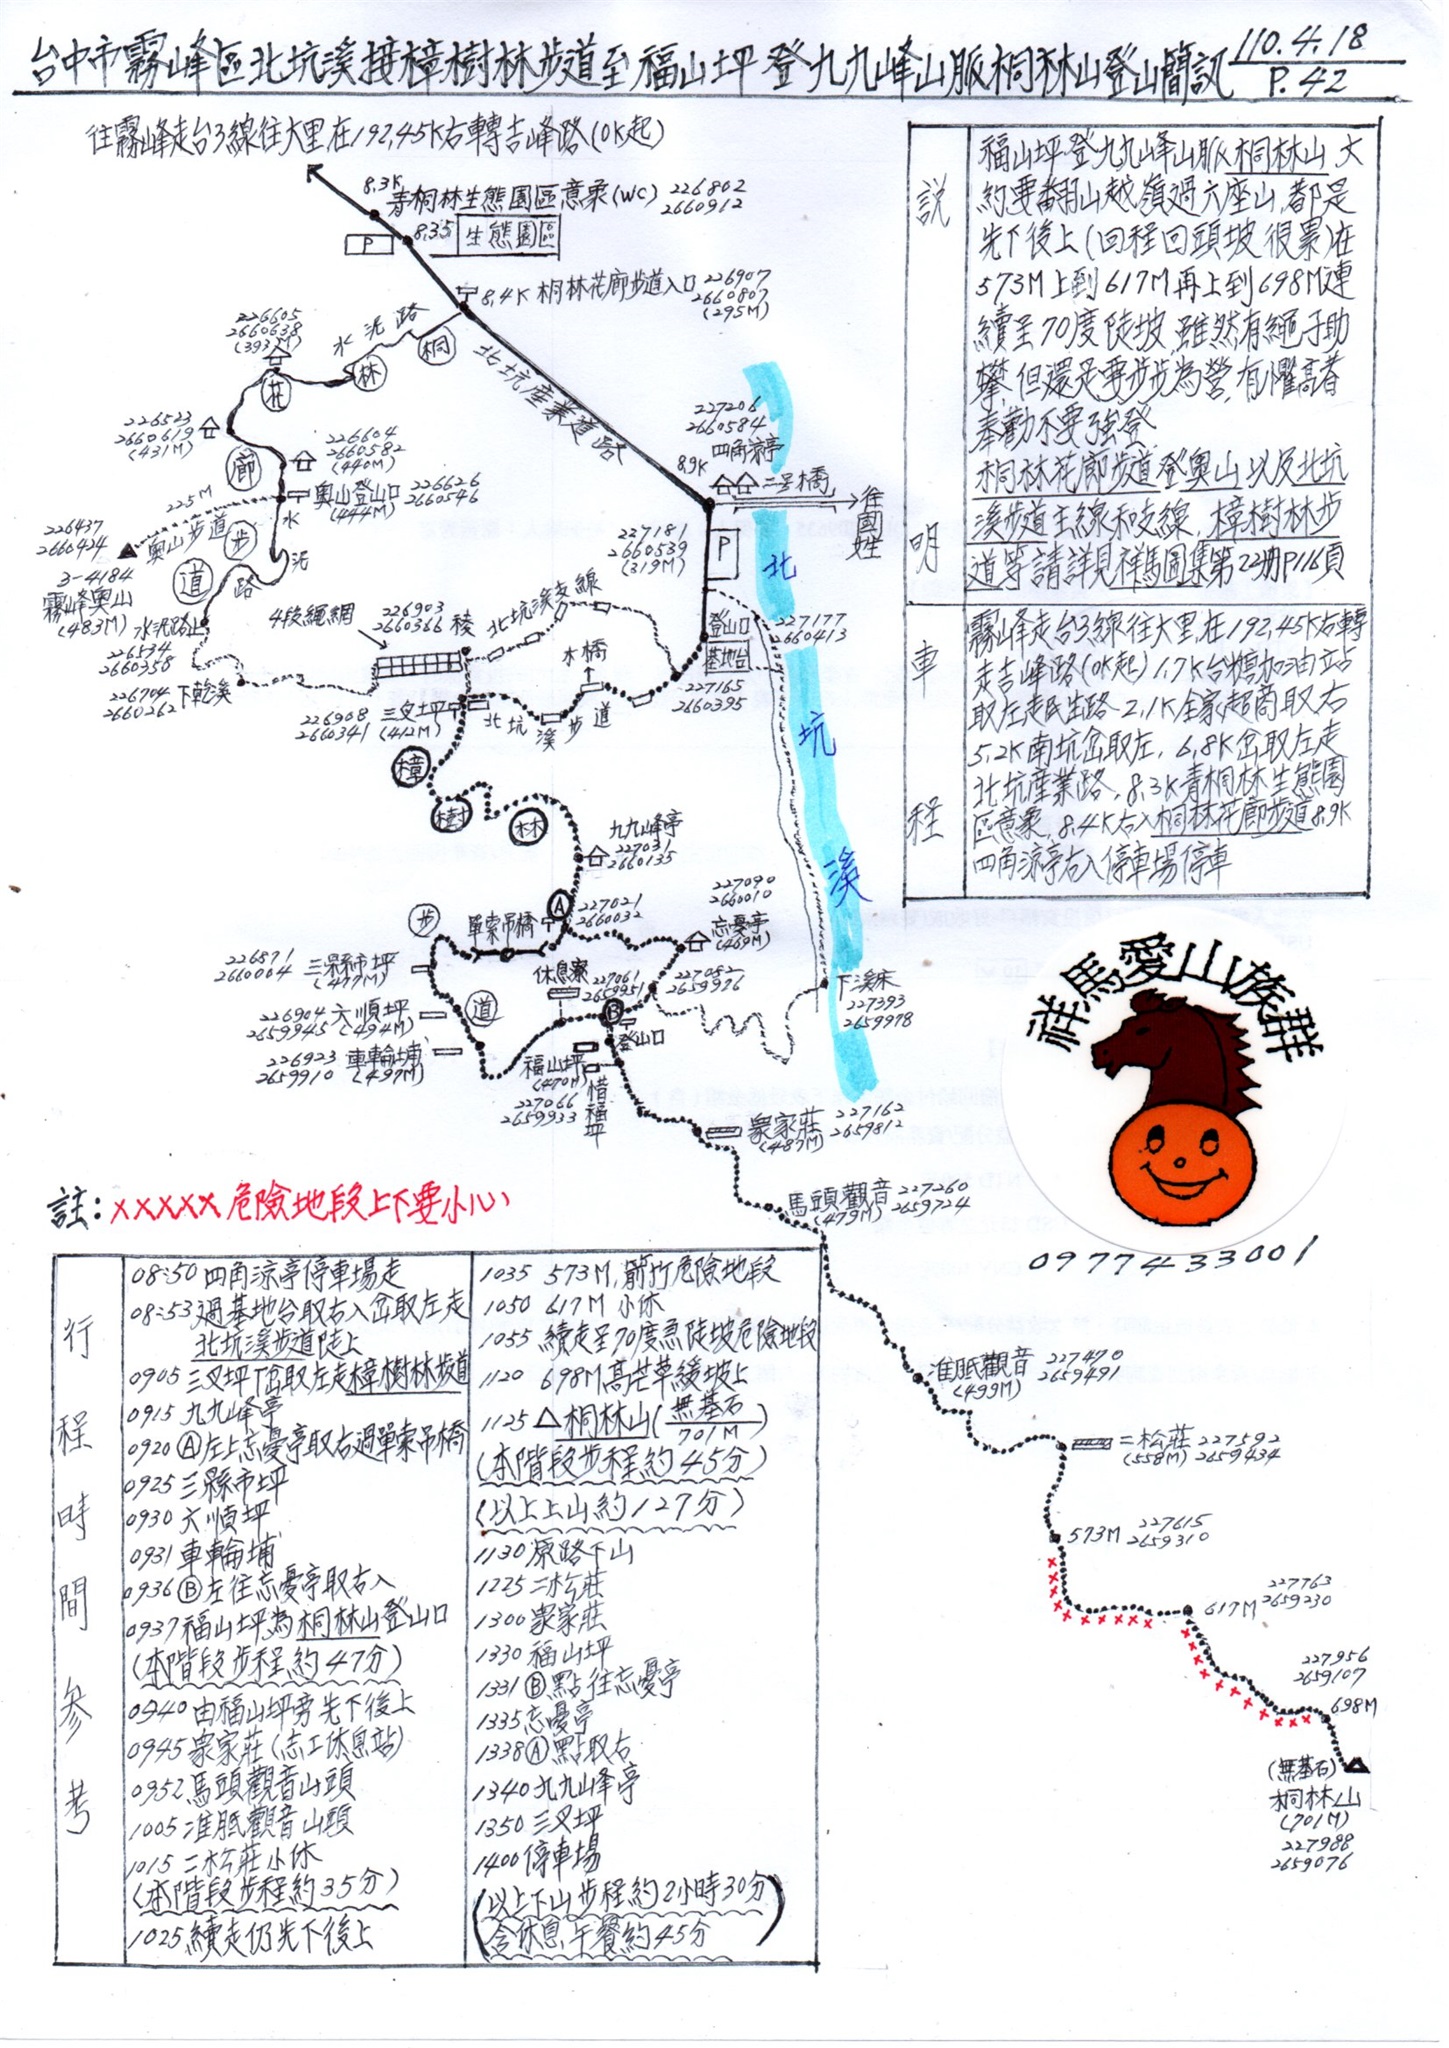 台中市霧峰區北坑溪接樟樹林步道至福山坪登九九峰山脈桐林山登山簡訊
110.4.18
P.42
往霧峰走台3線往大里在192,45K右轉吉峰路(0K起)
8,3K
青桐林生態園區意象(WC)
226802
2660912
P
8,35
生態園區
8,4K 桐林花廊步道入口
226907
2660807
(295M)
226605
2660638
(393M)
水泥路
桐
林
花
廊
步
道
北坑產業道路
226523
2660619
(431M)
226604
2660582
(440M)
奧山登山口
(444M)
226626
2660546
225M
奧山步道
226437
2660424
3-4184
霧峰奧山
(483M)
水泥路
水泥路止
226534
2660358
226704
2660262
下乾溪
4段繩網
226903
2660366
稜
北坑溪支線
木橋
三叉坪
(412M)
226908
2660341
北坑溪步道
8,9K
227206
2660584
四角涼亭
二号橋
往國姓
227181
2660539
(319M)
P
登山口
基地台
227177
2660413
227165
2660395
北坑溪
樟
樹
林
步
道
九九峰亭
227031
2660135
A
227021
2660032
單索吊橋
227090
2660010
忘憂亭
(469M)
226871
2660004
三縣市坪
(477M)
休息家
227061
2659951
B
227082
2659976
下溪床
227393
2659978
226904
2659945
六順坪
(494M)
226923
2659910
車輪埔
(497M)
登山口
福山坪
(470M)
227066
2659933
惜福坪
眾家莊
(487M)
227162
2659812
馬頭觀音
(479M)
227260
2659724
准胝觀音
(499M)
227470
2659491
二松莊
(558M)
227592
2659434
573M
227615
2659310
617M
227763
2659230
227956
2659107
698M
(無基石)
桐林山
(701M)
227988
2659076
說明
福山坪登九九峰山脈桐林山大
約要翻山越嶺過六座山,都是
先下後上(回程回頭坡很累)在
573M上到617M再上到698M連
續至70度陡坡,雖然有繩子助
攀,但還是要步步為營,有懼高者
奉勸不要強登
桐林花廊步道登奧山以及北坑
溪步道主線和支線,樟樹林步
道等請詳見祥馬圖集第22冊P116頁
車程
霧峰走台3線往大里,在192,45K右轉
走吉峰路(0K起)1,7K台糖加油站
取左走民生路-2,1K全家超商取右
5,2K南坑岔取左,6,8K岔取左走
北坑產業路,8,3K青桐林生態園
區意象,8,4K右入桐林花廊步道8,9K
四角涼亭右入停車場停車
祥馬愛山族群
0977433001
註:×××××危險地段上下要小心
行程時間參考
08:50四角涼亭停車場走
08:53過基地台取右入岔取左走
北坑溪步道陡上
0905三叉坪T岔取左走樟樹林步道
0915九九峰亭
0920Ⓐ左上忘憂亭取右過單索吊橋
0925三縣市坪
0930六順坪
0931車輪埔
0936Ⓑ左往忘憂亭取右入
0937福山坪為桐林山登山口
(本階段步程約47分)
0940由福山坪旁先下後上
0945眾家莊(志工休息站)
0952馬頭觀音山頭
1005准胝觀音山頭
1015二松莊小休
(本階段步程約35分)
1025續走仍先下後上
1035 573M,箭竹危險地段
1050 617M小休
1055續走至70度急陡坡危險地段
1120 698M高芒草緩坡上
1125△桐林山(無基石/701M)
(本階段步程約45分)
(以上上山約127分)
1130原路下山
1225二松莊
1300眾家莊
1330福山坪
1331Ⓑ點往忘憂亭
1335忘憂亭
1338Ⓐ點取右
1340九九峰亭
1350三叉坪
1400停車場
(以上下山步程約2小時30分
含休息,午餐約45分)